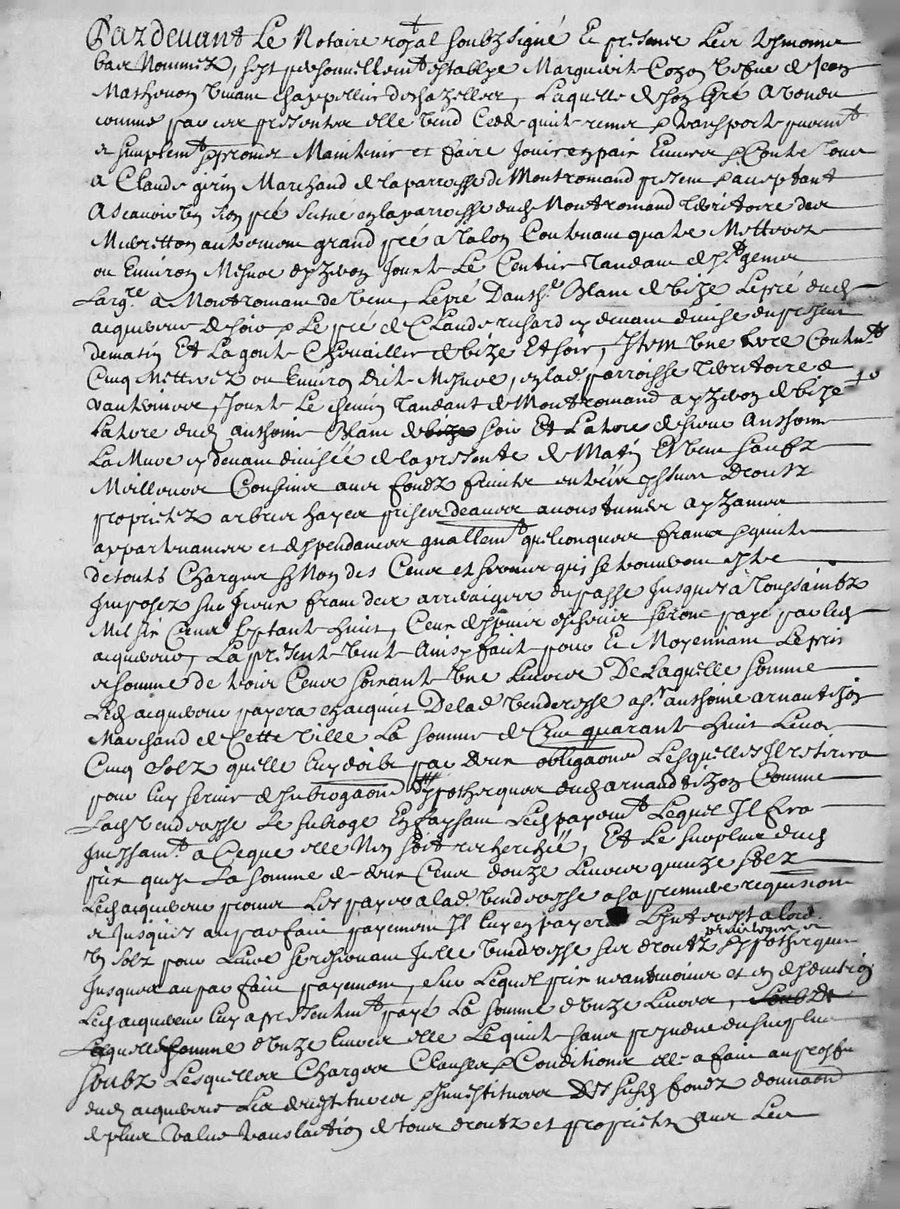 Pardevant Le Notaire royal soubzsigné Et presence Les tesmoins
bas Nommez, sest personnellemt establye Marguerite Cozon vefve de Jean
Mathevon vivant chappellier de chazelles, Laquelle de son Gré A vendu
comme par ces presentes elle vend Cede quite remet & transporte puremt
& simplemt & promet Maintenir et faire Jouir en paix Envers & Contre tous
a Claude girin Marchand de la parroisse de Montromand present & acceptant
Ascavoir Un sien pré situé en la parroisse dud Montromand territoire des
autrement grand pré a Contenant quatre Metterez
ou Environ Mesure dyzeron Joint Le Sentier Tandant de St genis
Largre a Montromand de vent, Le pré Danthe Blanc de bize Le pré dud
acquereur de soir & Le pré de Claude richard en devant divisé du present
de matin Et La goute Chevalliere de bize Et soir, Item Une terre Contenant
Cinq Metterez ou Environ dite Mesure, en lad parroisse territoire de
Joint Le chemin Tandant de Montromand a yzeron de bize
La terre dud anthoine Blanc de soir Et La terre de sieur Anthoine
La Mure en devant divisée de la presente de Matin Et vent sauf
Meilleurs Confins avec fondz fruits entrées yssues Droitz
proprietez arbres hayes prises deaux accoustumées aysances
appartenances et dependances generallemt quelconques francs & quites
de touts Charges sinon des Cens et servis qui se trouveront estre
Imposez sur Iceux francs des arrerages du passé Jusques a Toussaintz
Mil six Cens septante huit, Ceux de et seront payé par led
acquereur, La presente vente Ainsy fait pour Et Moyennant Le prix
& somme de trois Cens soixante Une Livres De Laquelle somme
Led acquereur payera en acquit De lad venderesse a sr anthoine arnaud
Marchand de Cette ville La somme de Cent quarante huit Livres
Cinq solz quelle luy doibt par deux obligaons Lesquelles Il retirera
pour luy servir de subrogaon hypotheques dud arnaud Comme
Lad venderesse Le subroge En faysant led payemt Lequel Il fera
Incessamt a Ce que elle Nen soit recherchée, Et Le surplus dud
prix qu est La somme de deux Cens douze Livres quinze solz
Led acquereur promet Les payer a lad venderesse a sa premiere requisition
& Jusques au parfait payement Il luy en payera Linterest a lord
Un solz pour Livre se reservant Icelle venderesse ses droitz privileges & & hypotheques
Jusques au parfait payement, sur Lequel prix neantmoins et en deduction
Led acquereur luy a presentemt payé La somme donze Livres,
Laquelle somme donze livres elle Le quite sans prejudice du surplus
soubz Lesquelles Charges Clauses & Conditions elle a fait au proffit
dud acquereur Les devestitures & Investitures Des susd fondz donnaon
de plus value translation de tous droitz et proprietez avec Les